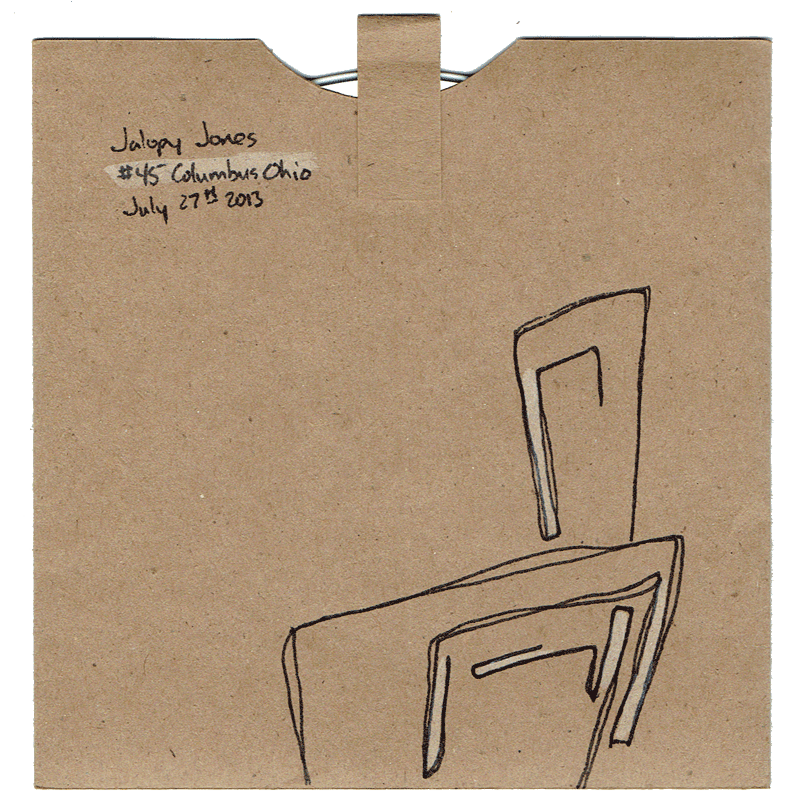 Jalopy Jones
#45 Columbus Ohio
July 27th 2013